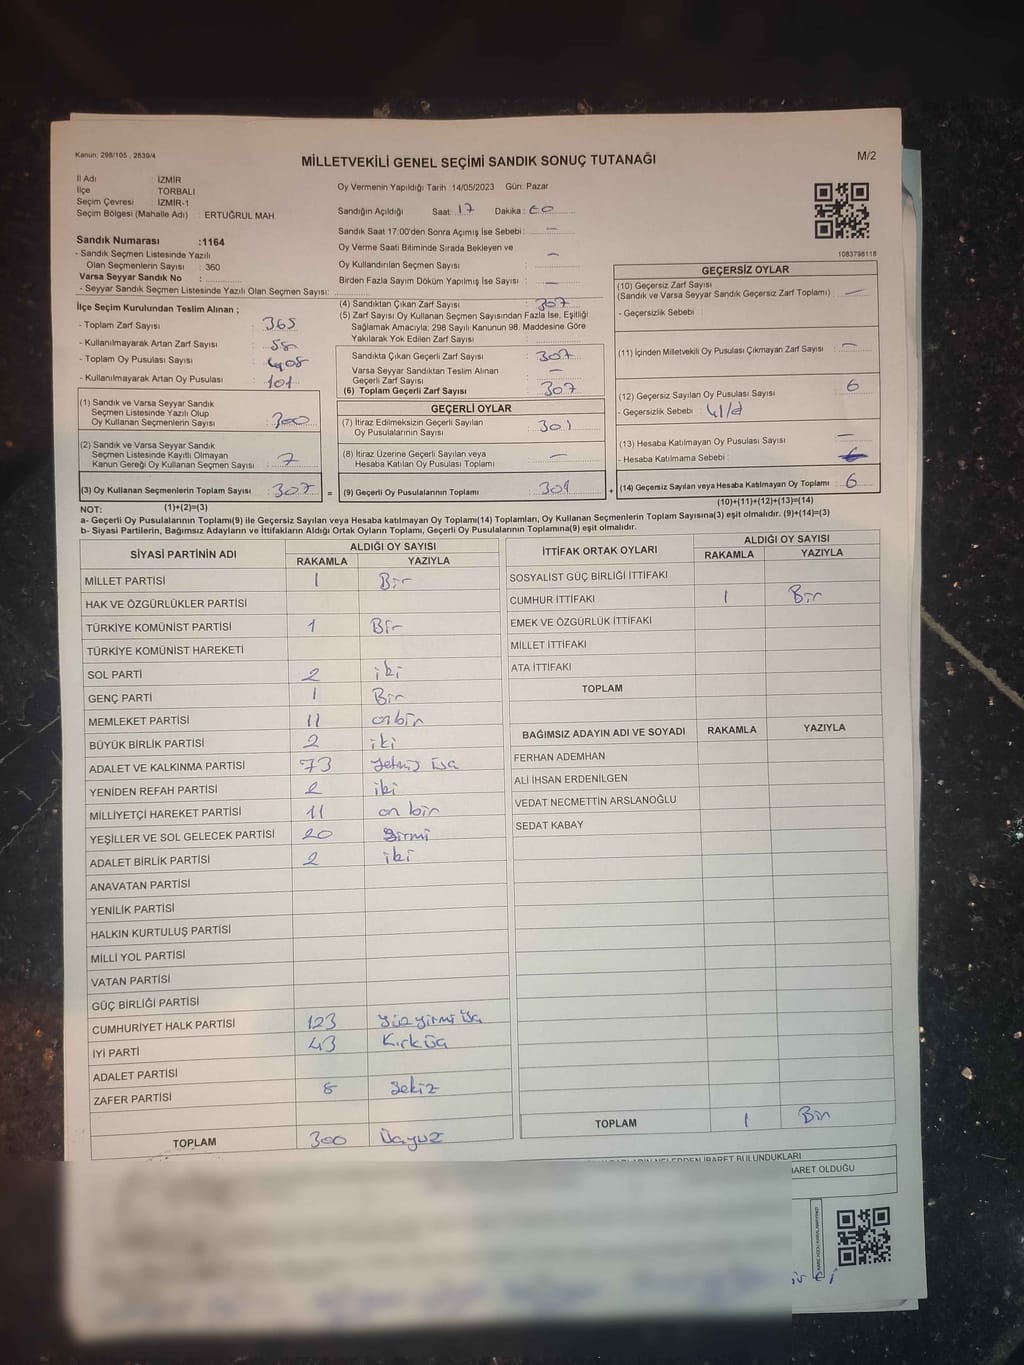 Kanun; 298/105 , 2839/4
MİLLETVEKİLİ GENEL SEÇİMİ SANDIK SONUÇ TUTANAĞI
M/2
İl Adı : İZMİR
İlçe : TORBALI
Seçim Çevresi : İZMİR-1
Seçim Bölgesi (Mahalle Adı) : ERTUĞRUL MAH.
Oy Vermenin Yapıldığı Tarih :14/05/2023 Gün: Pazar
Sandığın Açıldığı Saat: 17 Dakika:
Sandık Saat 17:00'den Sonra Açımış İse Sebebi : —
Oy Verme Saati Bitiminde Sırada Bekleyen ve
Oy Kullandırılan Seçmen Sayısı : —
Birden Fazla Sayım Döküm Yapılmış İse Sayısı : —
1083798118
Sandık Numarası :1164
- Sandık Seçmen Listesinde Yazılı
Olan Seçmenlerin Sayısı : 360
Varsa Seyyar Sandık No :
- Seyyar Sandık Seçmen Listesinde Yazılı Olan Seçmen Sayısı:
İlçe Seçim Kurulundan Teslim Alınan ;
- Toplam Zarf Sayısı : 365
- Kullanılmayarak Artan Zarf Sayısı : 58
- Toplam Oy Pusulası Sayısı : 408
- Kullanılmayarak Artan Oy Pusulası : 101
(1) Sandık ve Varsa Seyyar Sandık
Seçmen Listesinde Yazılı Olup
Oy Kullanan Seçmenlerin Sayısı : 300
(2) Sandık ve Varsa Seyyar Sandık
Seçmen Listesinde Kayıtlı Olmayan
Kanun Gereği Oy Kullanan Seçmen Sayısı : 7
(3) Oy Kullanan Seçmenlerin Toplam Sayısı : 307 =
(1)+(2)=(3)
(4) Sandıktan Çıkan Zarf Sayısı : 307
(5) Zarf Sayısı Oy Kullanan Seçmen Sayısından Fazla İse, Eşitliği
Sağlamak Amacıyla; 298 Sayılı Kanunun 98. Maddesine Göre
Yakılarak Yok Edilen Zarf Sayısı :
Sandıkta Çıkan Geçerli Zarf Sayısı : 307
Varsa Seyyar Sandıktan Teslim Alınan
Geçerli Zarf Sayısı : —
(6) Toplam Geçerli Zarf Sayısı : 307
GEÇERLİ OYLAR
(7) İtiraz Edilmeksizin Geçerli Sayılan
Oy Pusulalarının Sayısı : 301
(8) İtiraz Üzerine Geçerli Sayılan veya
Hesaba Katılan Oy Pusulası Toplamı : —
(9) Geçerli Oy Pusulalarının Toplamı : 301 +
GEÇERSİZ OYLAR
(10) Geçersiz Zarf Sayısı
(Sandık ve Varsa Seyyar Sandık Geçersiz Zarf Toplamı) : —
- Geçersizlik Sebebi :
(11) İçinden Milletvekili Oy Pusulası Çıkmayan Zarf Sayısı : —
(12) Geçersiz Sayılan Oy Pusulası Sayısı : 6
- Geçersizlik Sebebi :
(13) Hesaba Katılmayan Oy Pusulası Sayısı : —
- Hesaba Katılmama Sebebi :
(14) Geçersiz Sayılan veya Hesaba Katılmayan Oy Toplamı : 6
(10)+(11)+(12)+(13)=(14)
NOT:
a- Geçerli Oy Pusulalarının Toplamı(9) ile Geçersiz Sayılan veya Hesaba katılmayan Oy Toplamı(14) Toplamları, Oy Kullanan Seçmenlerin Toplam Sayısına(3) eşit olmalıdır. (9)+(14)=(3)
b- Siyasi Partilerin, Bağımsız Adayların ve İttifakların Aldığı Ortak Oyların Toplamı, Geçerli Oy Pusulalarının Toplamına(9) eşit olmalıdır.
SİYASİ PARTİNİN ADI ALDIĞI OY SAYISI
RAKAMLA YAZIYLA
MİLLET PARTİSİ 1 Bir
HAK VE ÖZGÜRLÜKLER PARTİSİ
TÜRKİYE KOMÜNİST PARTİSİ 1 Bir
TÜRKİYE KOMÜNİST HAREKETİ
SOL PARTİ 2 iki
GENÇ PARTİ 1 Bir
MEMLEKET PARTİSİ 11 onbir
BÜYÜK BİRLİK PARTİSİ 2 iki
ADALET VE KALKINMA PARTİSİ 73 Yetmiş üç
YENİDEN REFAH PARTİSİ 2 iki
MİLLİYETÇİ HAREKET PARTİSİ 11 on bir
YEŞİLLER VE SOL GELECEK PARTİSİ 20 Yirmi
ADALET BİRLİK PARTİSİ 2 iki
ANAVATAN PARTİSİ
YENİLİK PARTİSİ
HALKIN KURTULUŞ PARTİSİ
MİLLİ YOL PARTİSİ
VATAN PARTİSİ
GÜÇ BİRLİĞİ PARTİSİ
CUMHURİYET HALK PARTİSİ 123 Yüz yirmi üç
İYİ PARTİ 43 Kırküç
ADALET PARTİSİ
ZAFER PARTİSİ 8 Sekiz
TOPLAM 300 Üçyüz
İTTİFAK ORTAK OYLARI ALDIĞI OY SAYISI
RAKAMLA YAZIYLA
SOSYALİST GÜÇ BİRLİĞİ İTTİFAKI
CUMHUR İTTİFAKI 1 Bir
EMEK VE ÖZGÜRLÜK İTTİFAKI
MİLLET İTTİFAKI
ATA İTTİFAKI
TOPLAM
BAĞIMSIZ ADAYIN ADI VE SOYADI RAKAMLA YAZIYLA
FERHAN ADEMHAN
ALİ İHSAN ERDENİLGEN
VEDAT NECMETTİN ARSLANOĞLU
SEDAT KABAY
TOPLAM 1 Bir
NELERDEN İBARET BULUNDUKLARI
OLDUĞU